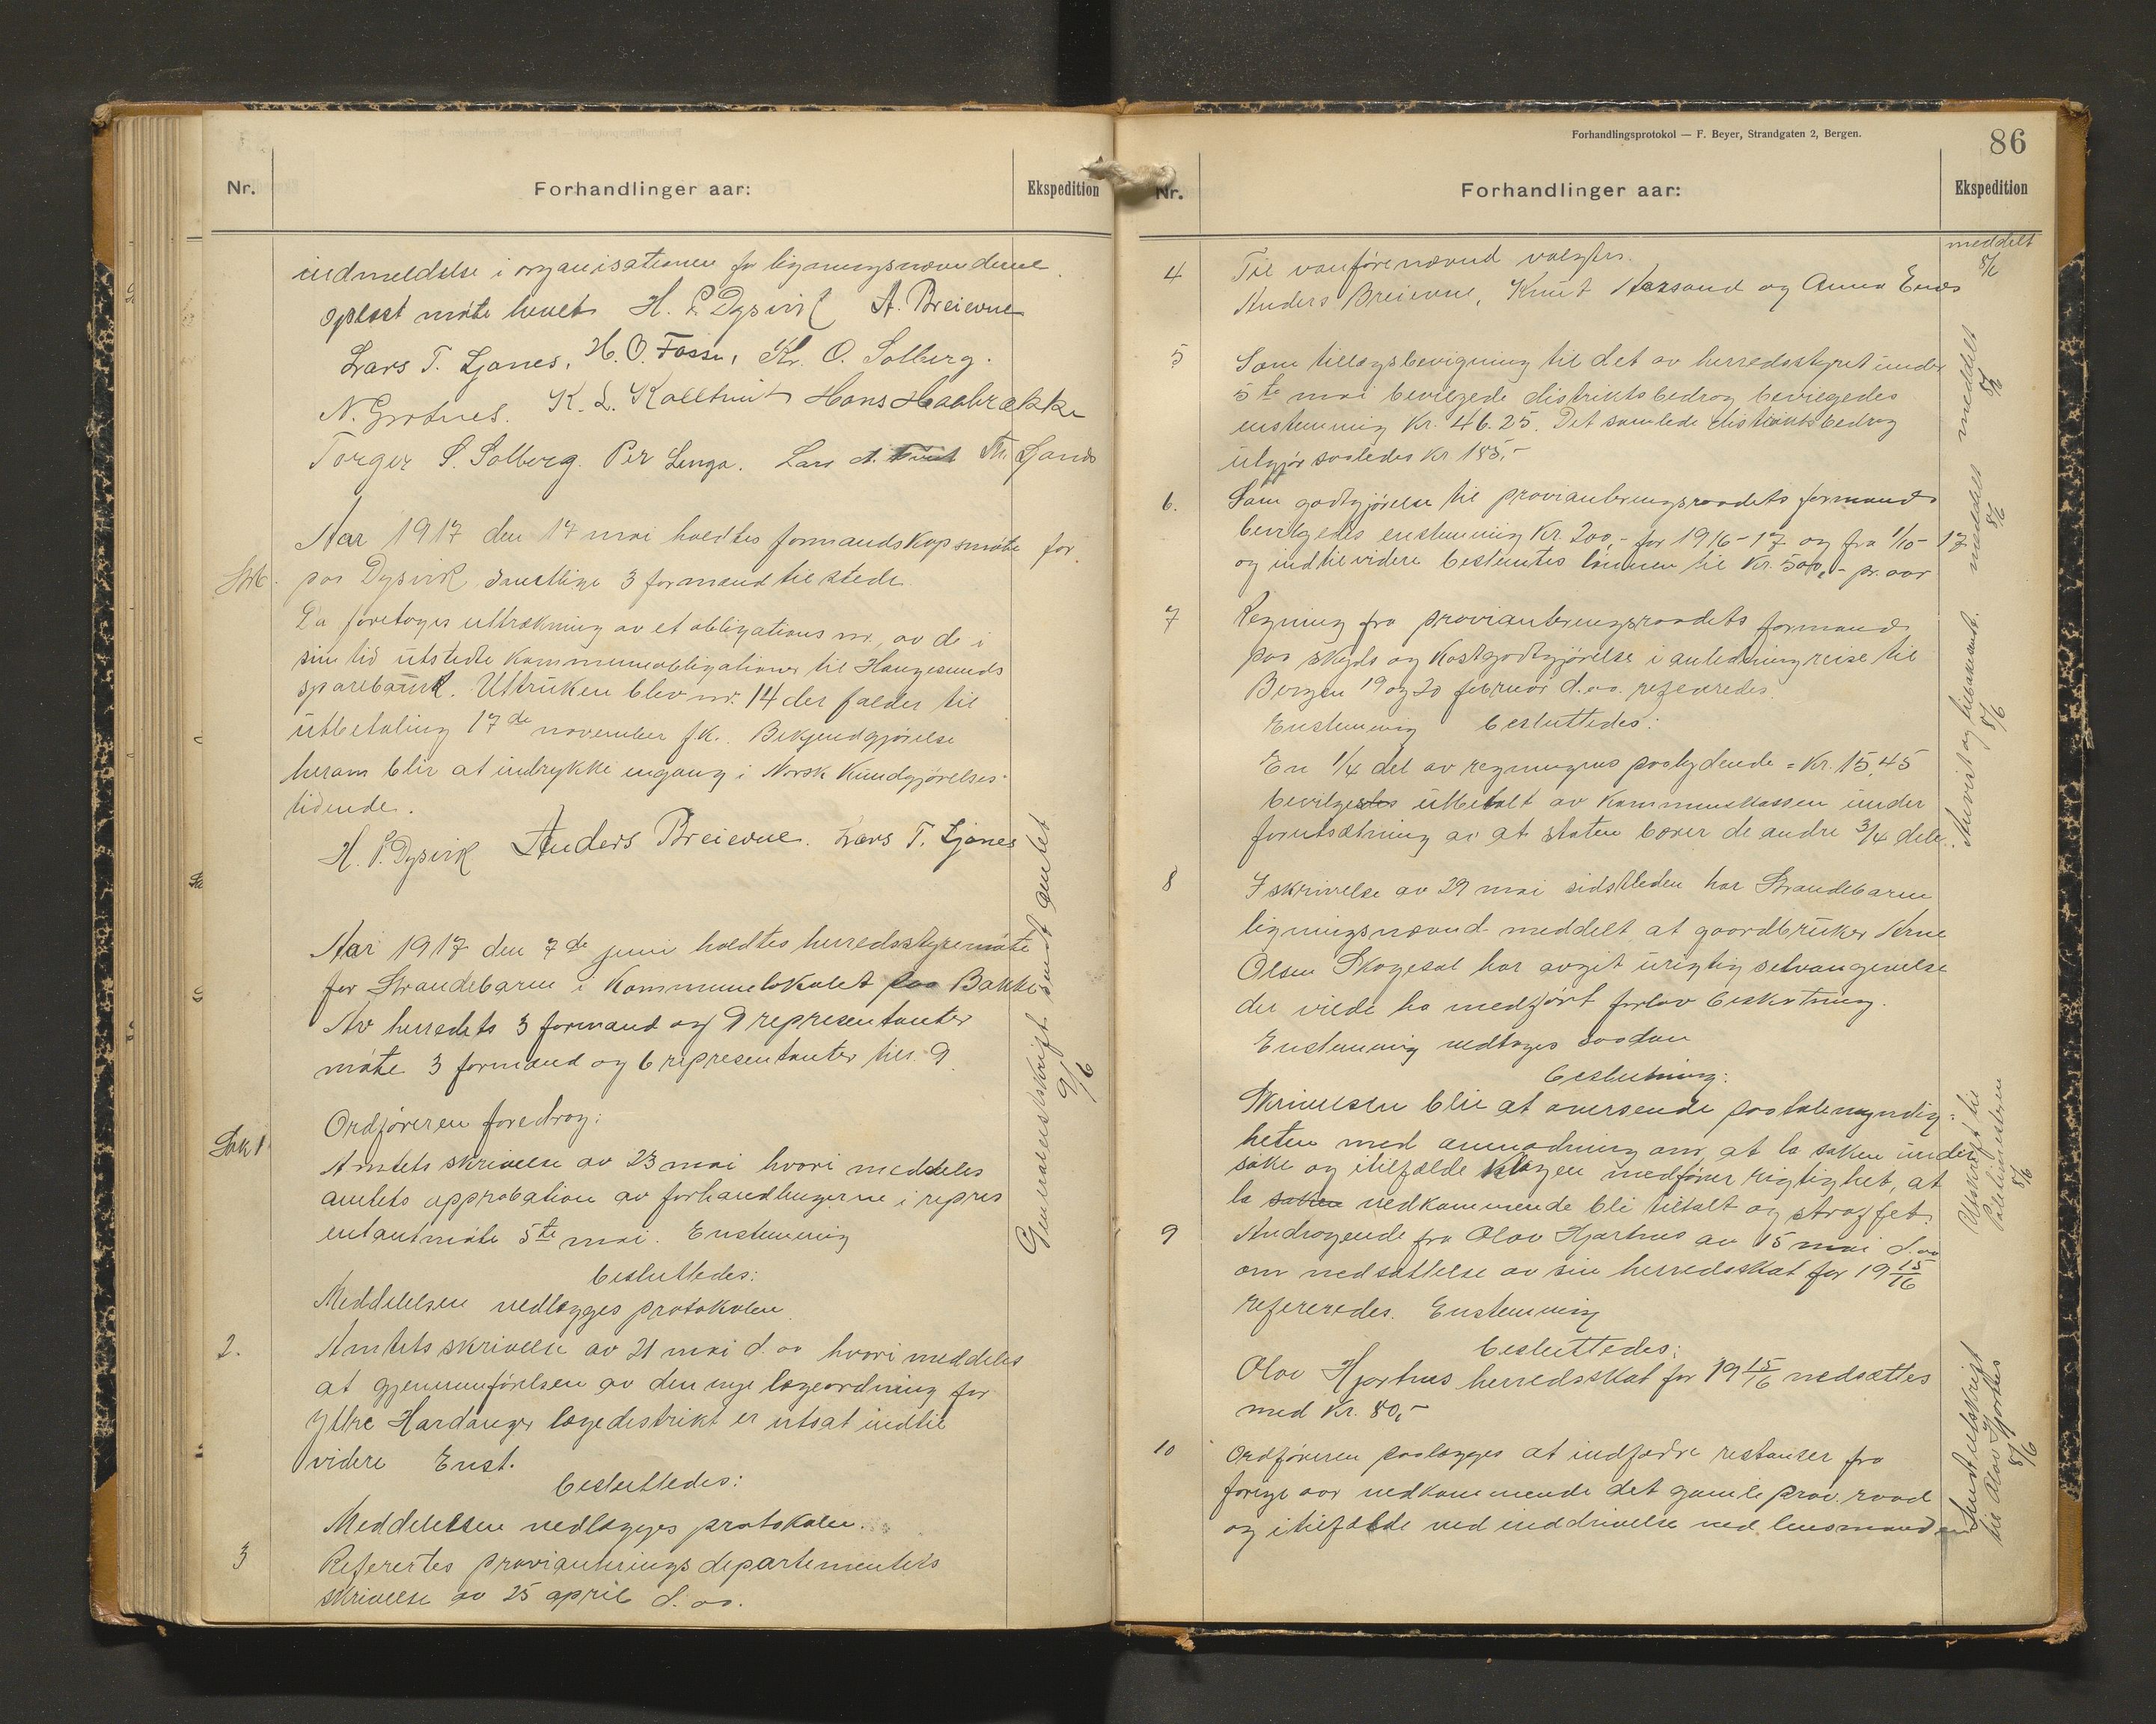 Nr.
Forhandlinger aar:
Ekspedition
indmeldelse i organisationen for ligningsnævnderne.
Oplæst møte hævet. H. P. Dysvik A. Breievne
Lars T. Ljones. H. O. Fosse, Kr. O. Solberg.
N. Grotnes. K. L. Kalltveit Hans Haabrække
Torger S. Solberg. Per Linga. Lars A. Th. Ljones
Aar 1917 den 17 mai holdtes formandskapsmøte for
Strb. paa Dysvik. Samtlige 3 formænd tilstede.
Da foretoges uttrækning av et obligations nr. av de i
sin tid utstedte kommuneobligationer til Haugesunds
sparebank. Uttrukken blev nr. 14 der falder til
utbetaling 17de november f.k. Bekjendgjørelse
herom blir at indrykke engang i Norsk Kundgjørelses-
tidende.
H. P. Dysvik Anders Breievne. Lars T. Ljones
Aar 1917 den 7de juni holdtes herredsstyremøte
for Strandebarm i Kommunelokalet paa Bakke
Av herredets 3 formænd og 9 representanter
møtte 3 formænd og 6 representanter tils. 9.
Ordføreren foredrog:
Sak 1 Amtets skrivelse av 23 mai hvori meddeles
amtets approbation av forhandlingerne i repres
entantmøte 5te mai. Enstemmig
besluttedes:
Meddelelsen vedlægges protokolen.
2. Amtets skrivelse av 21 mai d. aa hvori meddeles
at gjennemførelsen av den nye lægeordning for
Ytre Hardanger lægedistrikt er utsat indtil
videre Enst.
besluttedes:
Meddelelsen vedlægges protokolen.
3 Refertes provianteringsdepartementets
skrivelse av 25 april d. aa.
Gjenpartutskrift sendt amtet
9/6
Forhandlingsprotokol — F. Beyer, Strandgaten 2, Bergen.
86
Nr.
Forhandlinger aar:
Ekspedition
4 Til vanførenævnd valgtes.
Anders Breievne, Knut Aarsand og Anna Enes
meddelt
8/6
5 Som tillægsbevigning til det av herredsstyret under
5te mai bevilgede distriktsbedrag bevilgedes
enstemmig Kr. 46.25. Det samlede distriktsbedrag
utgjør saaledes Kr 185,-
meddelt
8/6
6. Som godtgjørelse til provianteringsraadets formand
bevilgedes enstemmig Kr. 200,- for 1916-17 og fra 1/10 - 17
og indtil videre bestemtes lønnen til Kr. 500,- pr. aar
meddelt
8/6
7 Regning fra provianteringsraadets formand
paa skyds og Kostgodtgjørelse i anledning reise til
Bergen 19 og 20 februar d.aa. refereredes.
Enstemmig besluttedes:
En 1/4 del av regningens paalydende = Kr. 15,45
bevilgedes utbetalt av Kommunekassen under
forutsætning av at staten bærer de andre 3/4 dele.
Anvist og tilbakesendt.
8/6
8 I skrivelse av 29 mai sidstleden har Strandebarm
ligningsnævnd meddelt at gaardbruker Arne
Olsen Skogesal har avgit urigtig selvangivelse
der vilde ha medført forlav beskatning.
Enstemmig vedtoges saadan
beslutning:
Skrivelsen blir at oversende paatalemyndig-
heten med anmodning om, at la saken under
søke og i tilfælde klagen medfører rigtighet, at
la saken vedkommende bli tiltalt og straffet.
Utskrift til
Politimesteren
8/6
9 Andragende fra Olav Hjartnes av 15 mai d. aa
om nedsættelse av sin herredsskat for 19 15/16
refereredes. Enstemmig
besluttedes:
Olav Hjartnes herredsskat for 19 15/16 nedsættes
med Kr. 80,-
Sendt utskrift
til Olav Hjartnes
8/6
10 Ordføreren paalægges at indfordre restanser fra
forrige aar vedkommende det gamle prov. raad
og i tilfælde ved inddrivelse ved lensmanden